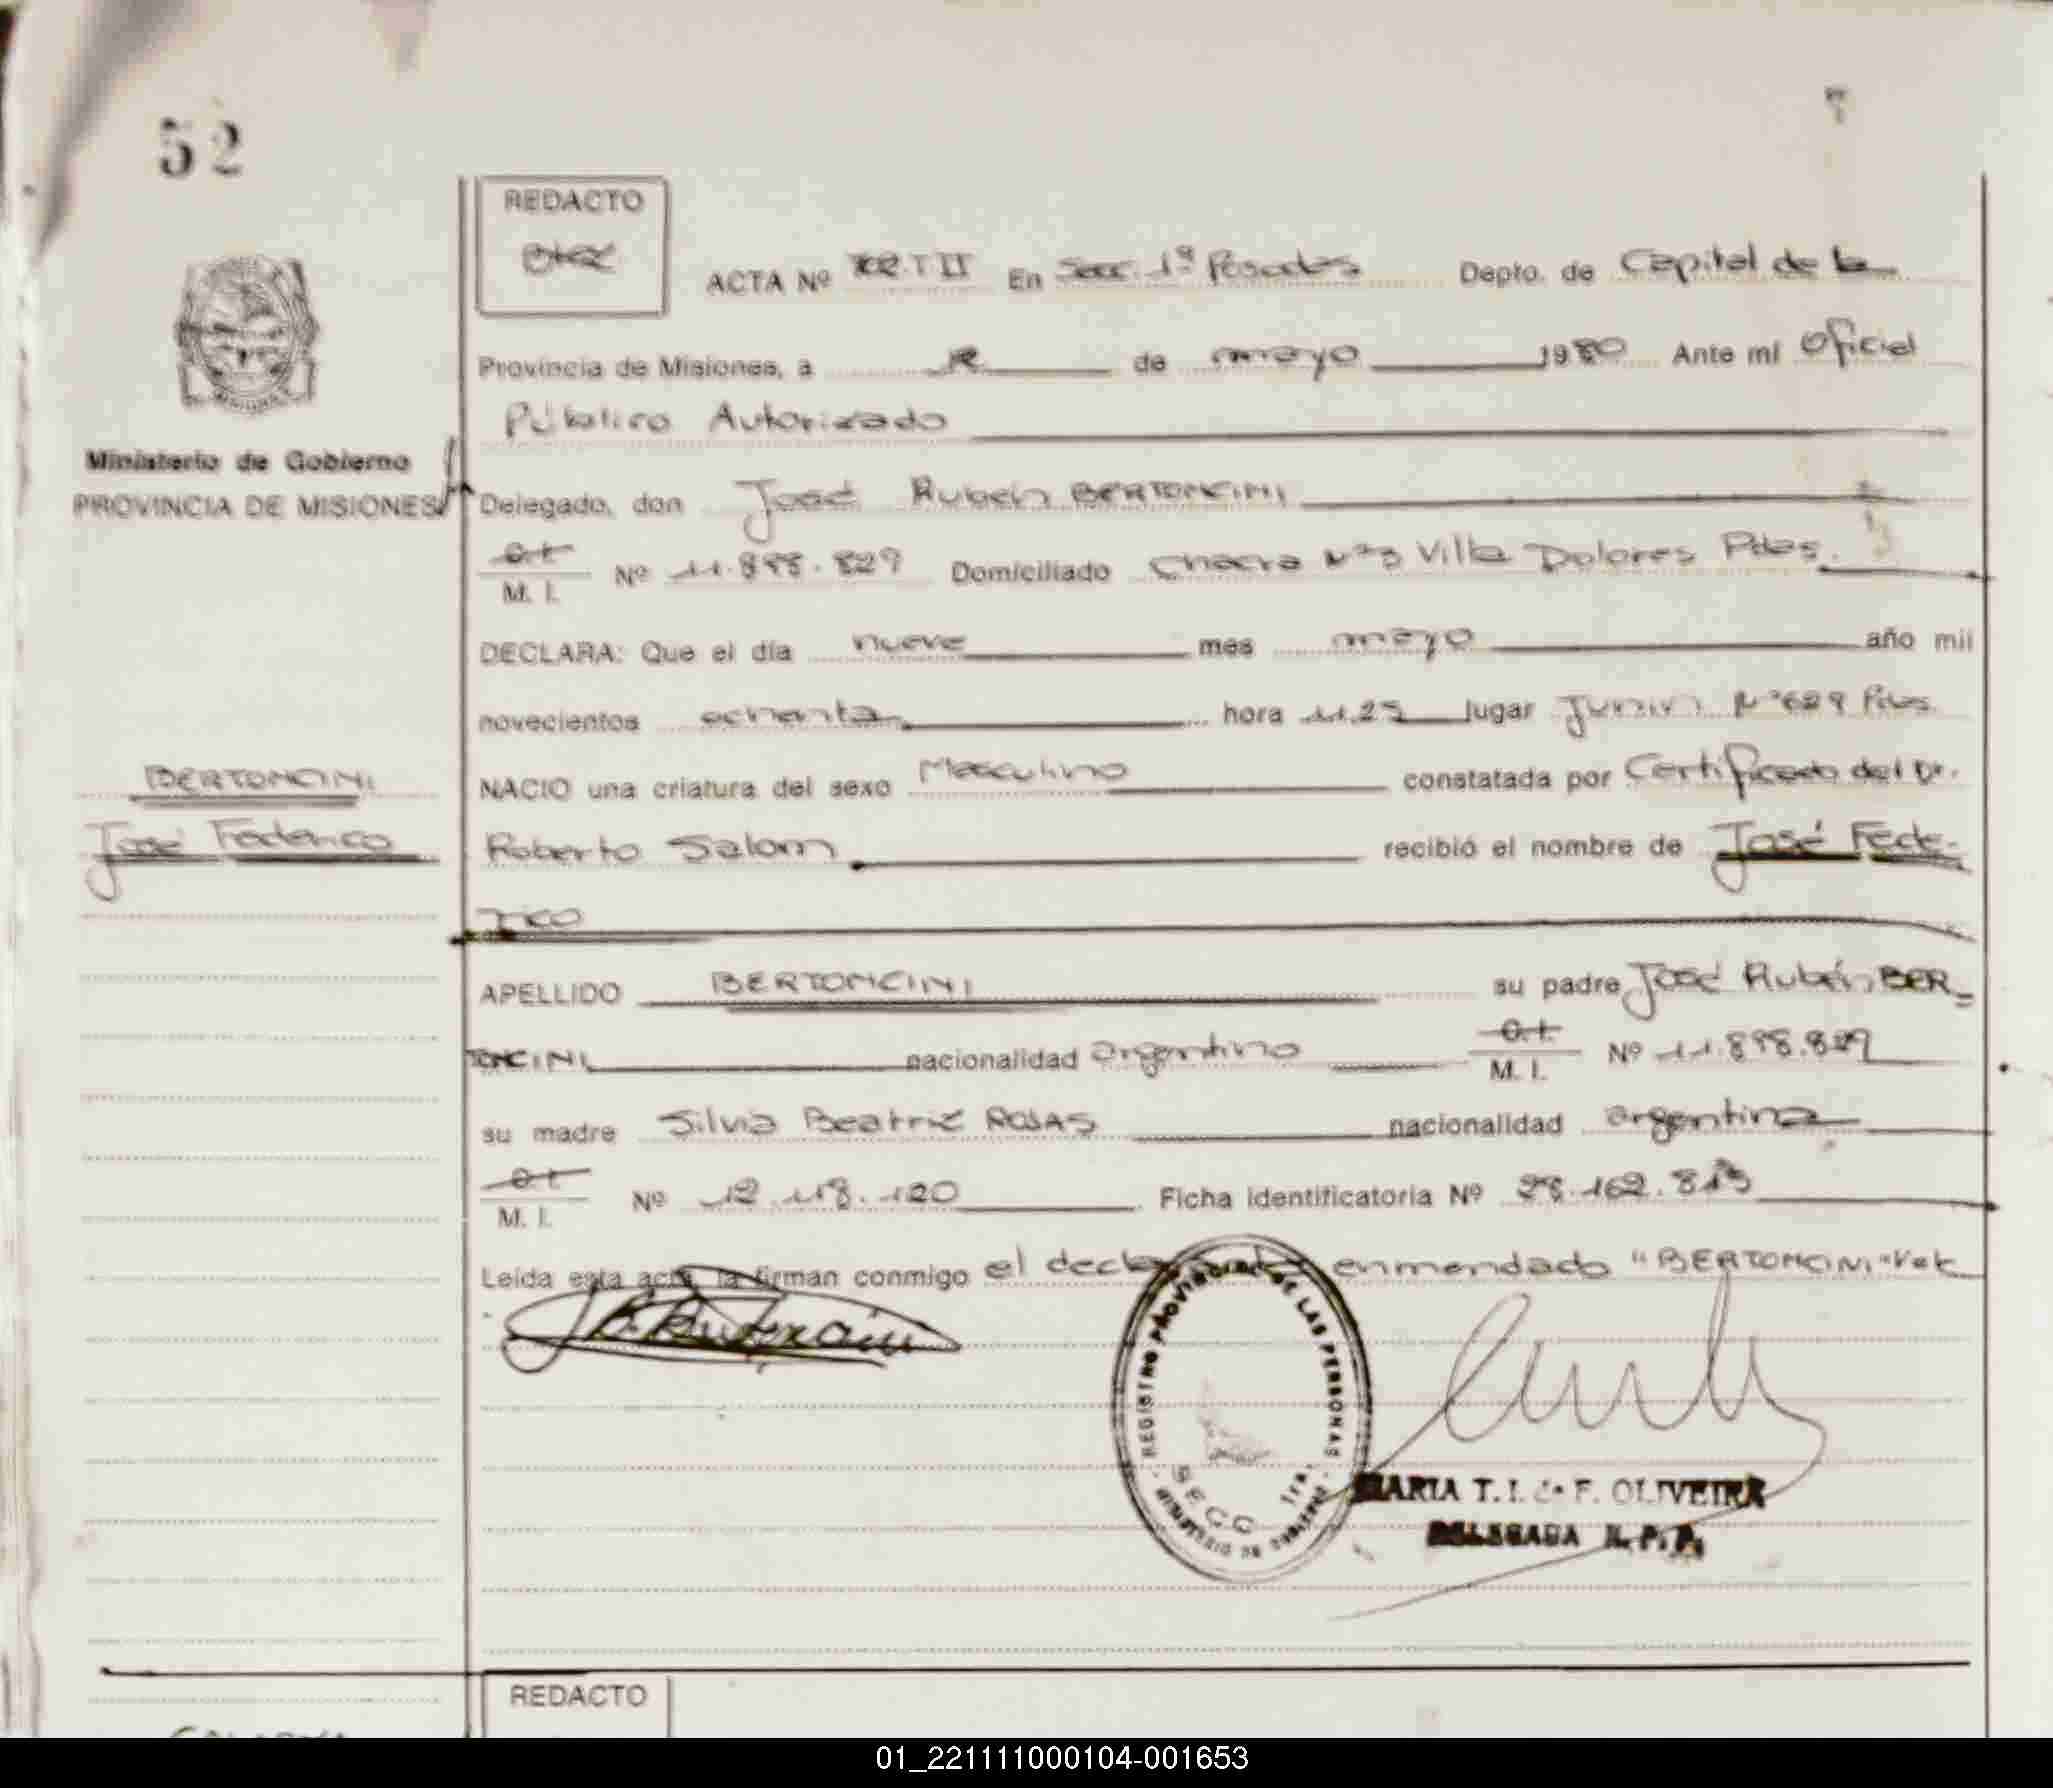 52
REDACTO
ACTA Nº T II En Secc. 1ª Posadas Depto. de Capital de la
Provincia de Misiones, a de mayo 1980 Ante mi Oficial
Público Autorizado
Ministerio de Gobierno
PROVINCIA DE MISIONES
Delegado, don José Rubén BERTONCINI
C.I.
M. I. Nº 11.898.829 Domiciliado Chacra Nº3 Villa Dolores Pdas.
DECLARA: Que el día nueve mes mayo año mil
novecientos ochenta hora 11.25 lugar Junin Nº629 Pdas.
BERTONCINI
José Federico
NACIO una criatura del sexo Masculino constatada por Certificado del Dr.
Roberto Salom recibió el nombre de José Fede-
rico
APELLIDO BERTONCINI su padre José Rubén BER-
TONCINI nacionalidad argentino C.I.
M. I. Nº 11.898.829
su madre Silvia Beatriz ROJAS nacionalidad argentina
C.I.
M. I. Nº 12.118.120 Ficha identificatoria Nº 28.162.813
Leída esta acta, la firman conmigo el declarante, enmendado "BERTONCINI" Vale
REGISTRO PROVINCIAL DE LAS PERSONAS
SECC 1ra.
MINISTERIO DE GOBIERNO
MARIA T. I. de F. OLIVEIRA
DELEGADA R. P. P.
REDACTO
01_221111000104-001653